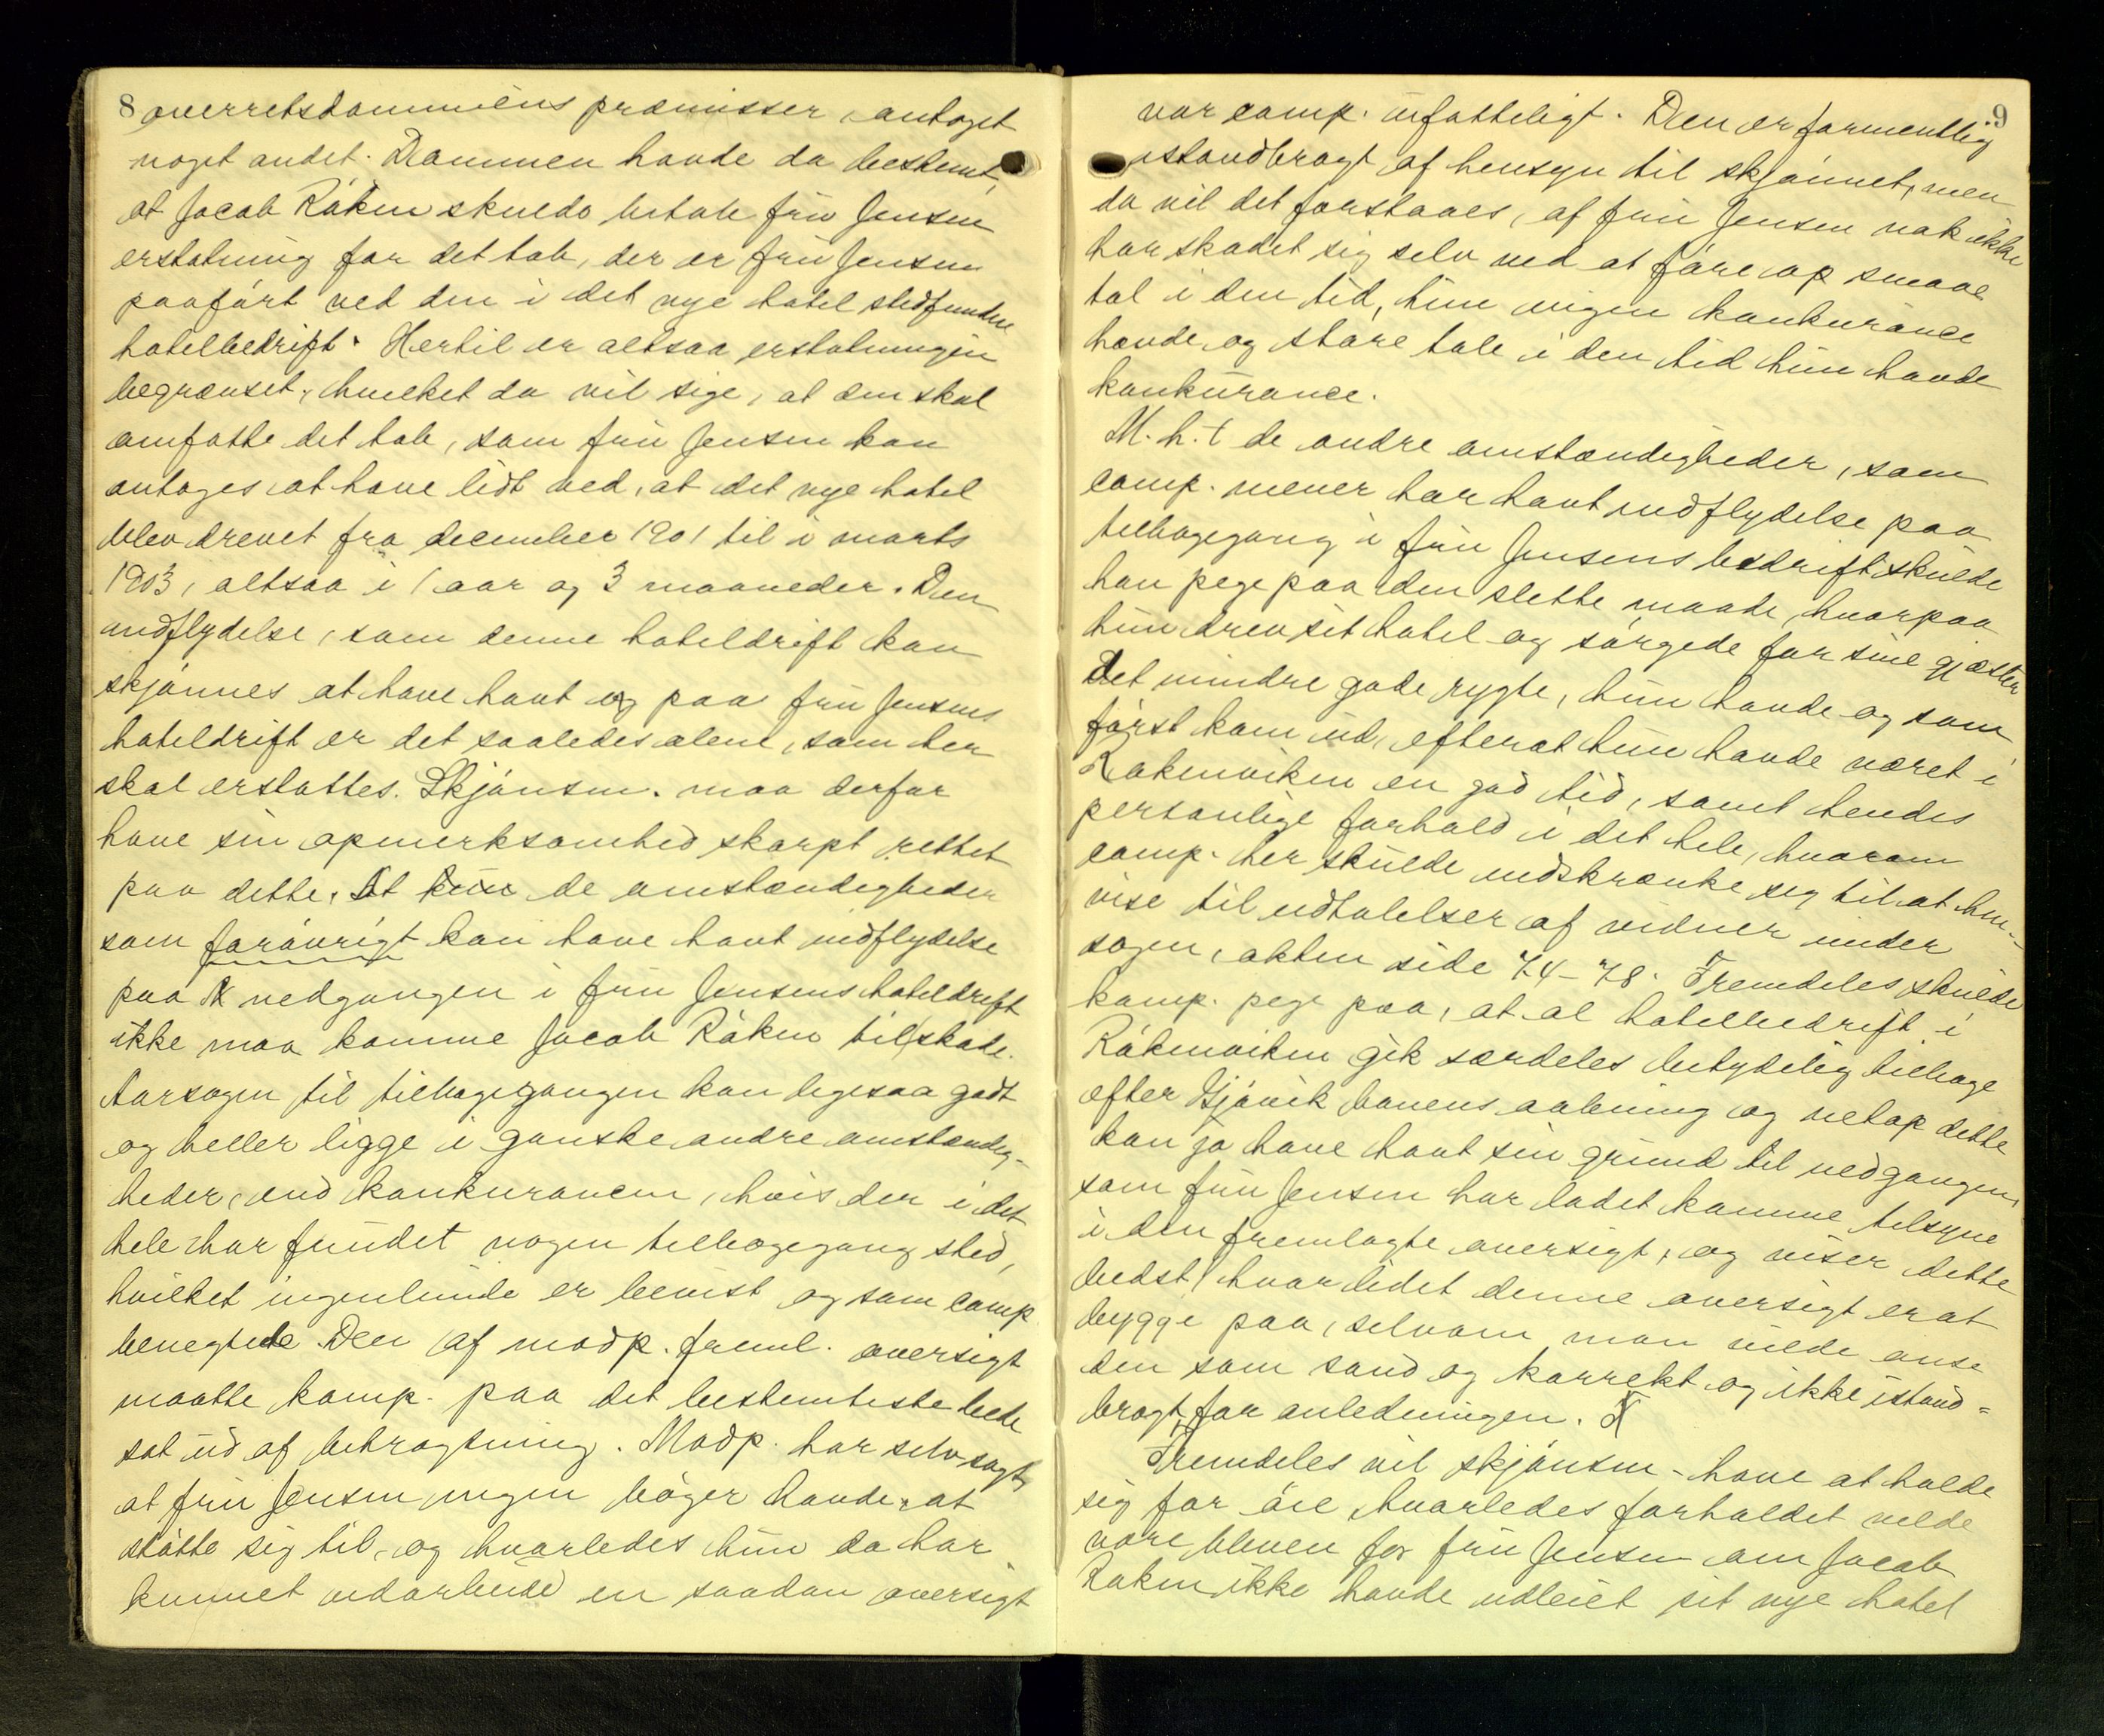 8 overretsdommens præmisser, antaget
noget andet. Dommen havde da bestemt,
at Jacob Røken skulde betale frú Jensen
erstatning for det tab, der er frú Jensen
paaført ved den i det nye hotel stedfundne
hotelbedrift. Hertil er altsaa erstatningen
begrænset, hvilket da vil sige, at den skal
omfatte det tab, som frú Jensen kan
antages at have lidt ved, at det nye hotel
blev drevet fra december 1901 til i marts
1903, altsaa i 1 aar og 3 maaneder. Den
indflydelse, som denne hoteldrift kan
skjønnes at have havt og paa frú Jensens
hoteldrift er det saaledes alene, som her
skal erstattes. Skjønsm. maa derfor
have sin opmerksomhed skarpt rettet
paa dette. At de omstændigheder
som forøvrigt kan have havt indflydelse
paa nedgangen i frú Jensens hoteldrift
ikke maa komme Jacob Røken til skade.
Aarsagen til tilbagegangen kan ligesaa godt
og heller ligge i ganske andre omstændig-
heder, end konkurancen, hvis der i det
hele har fúndet nogen tilbagegang sted,
hvilket ingenlúnde er bevist og som comp
benegtede. Den af modp. freml. oversigt
maatte komp. paa det bestemteste bede
sat úd af betragtning. Modp. har selv sagt,
at frú Jensen ingen bøger havde at
støtte sig til, og hvorledes hún da har
kunnet udarbeide en saadan oversigt
9
var comp. úfatteligt. Den er formentlig
istandbragt af hensyn til skjønnet, men
da vil det forstaaes, at frú Jensen nok ikke
har skadet sig selv ved at føre op smaae
tal i den tid, hún ingen konkúrance
havde, og store tale i den tid hún havde
konkúrance.
M.h.t de andre omstændigheder, som
comp. mener har havt indflydelse paa
tilbagegang i frú Jensens bedrift skúlde
han pege paa den slette maade, hvorpaa
hún drev sit hotel og sørgede for sine gjæster
Det mindre gode rygte, hún havde og som
først kom úd, efterat hún havde været i
Røkenviken en god tid, samt hendes
personlige forhold i det hele, hvorom
comp. her skúlde indskrænke sig til at hen-
vise til udtalelser af vidner únder
sagen, akten side 74-78. Fremdeles skúlde
komp. pege paa, at al hotelbedrift i
Røkenviken gik særdeles betydelig tilbage
efter Gjøvik banens aabning og netop dette
kan jo have havt sin grúnd til nedgangen,
som frú Jensen har ladet komme tilsyne
i den fremlagte oversigt, og viser dette
bedst, hvor lidet denne oversigt er at
bygge paa, selvom man vilde anse
den som sand og korrekt og ikke istand=
bragt for anledningen.
Fremdeles vil skjønsm. have at holde
sig for øie, hvorledes forholdet vilde
være bleven for frú Jensen om Jacob
Røken ikke havde udleiet sit nye hotel